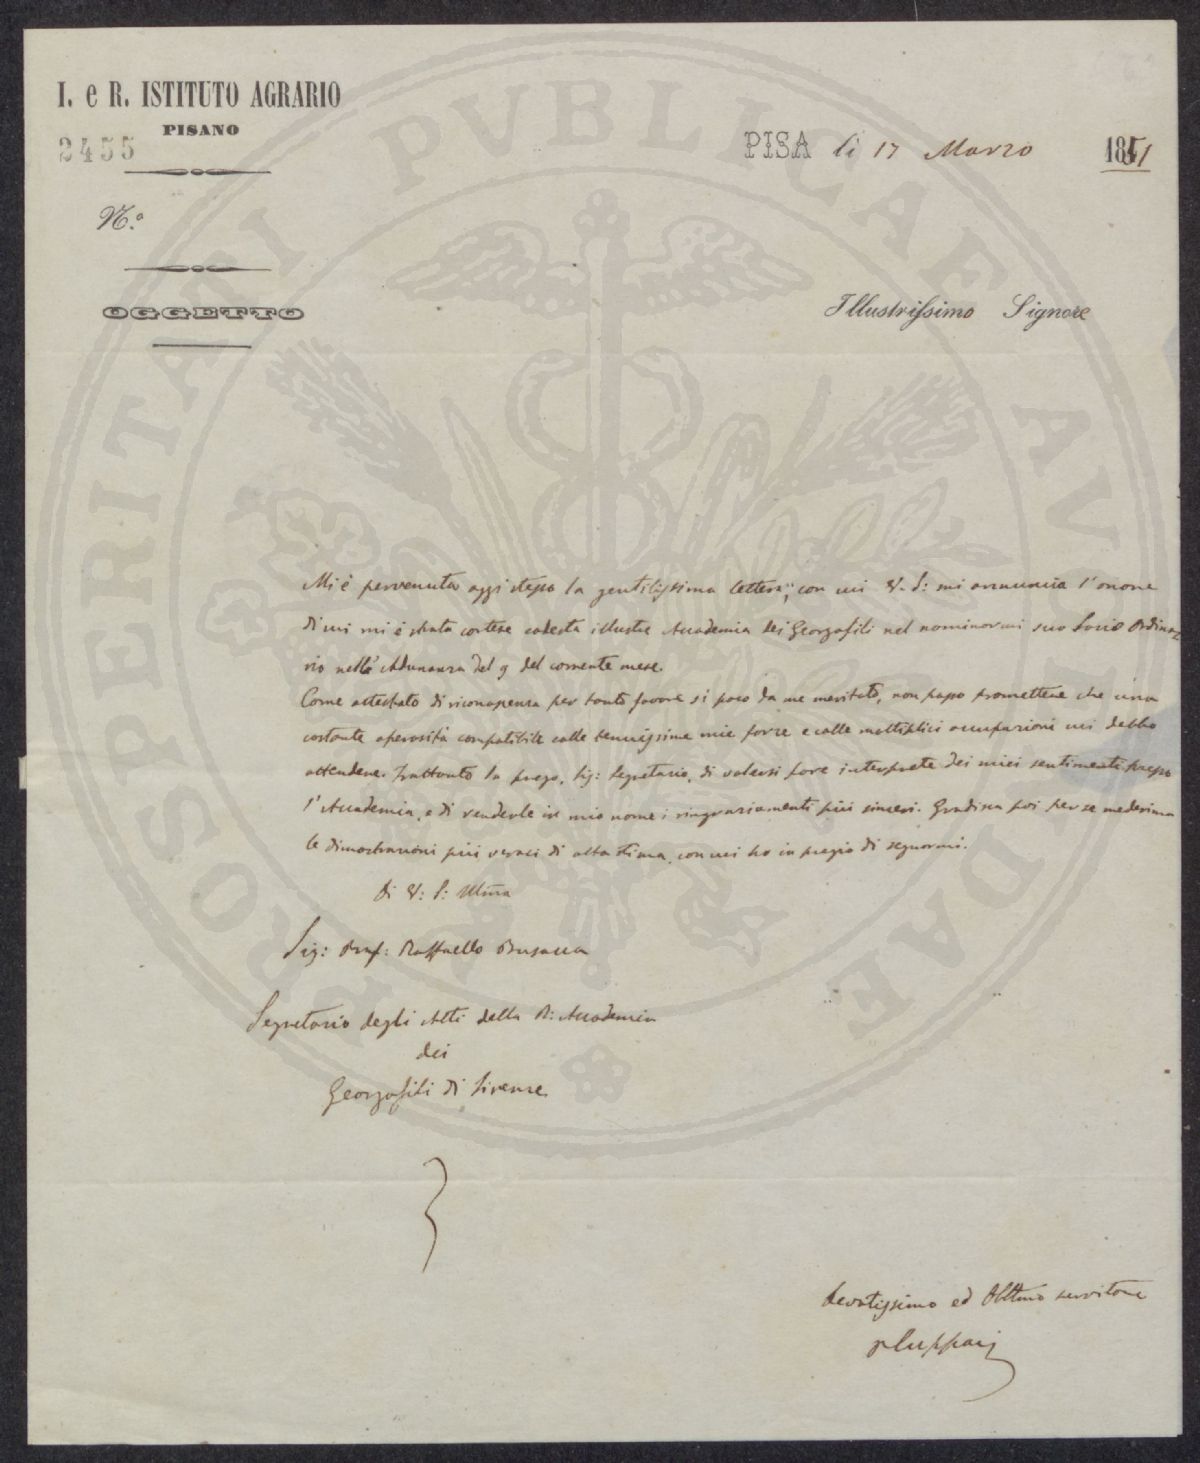 I. e R. ISTITUTO AGRARIO
PISANO
2455
PISA li 17 Marzo 1851
N.º
OGGETTO
Illustrissimo Signore
Mi è pervenuta oggi stesso la gentilissima lettera, con cui V. S: mi annunzia l'onore
di cui mi è stata cortese codesta illustre Accademia dei Georgofili nel nominarmi suo Socio Ordina
rio nell'Adunanza del 9 del corrente mese.
Come attestato di riconoscenza per tanto favore sì poco da me meritato, non posso promettere che una
costante operosità compatibile colle tenuissime mie forze e colle moltiplici occupazioni cui debbo
attendere. Frattanto la prego, Sig: Segretario, di volersi fare interprete dei miei sentimenti presso
l'Accademia, e di renderle in mio nome i ringraziamenti più sinceri. Gradisca poi per se medesimo
le dimostrazioni più veraci di alta stima, con cui ho in pregio di segnarmi.
Di V: S: Illma
Sig: Prof: Raffaello Busacca
Segretario degli Atti della R: Accademia
dei
Georgofili di Firenze
devotissimo ed Obbmo servitore
PROSPERITATI PVBLICAE AVGENDAE